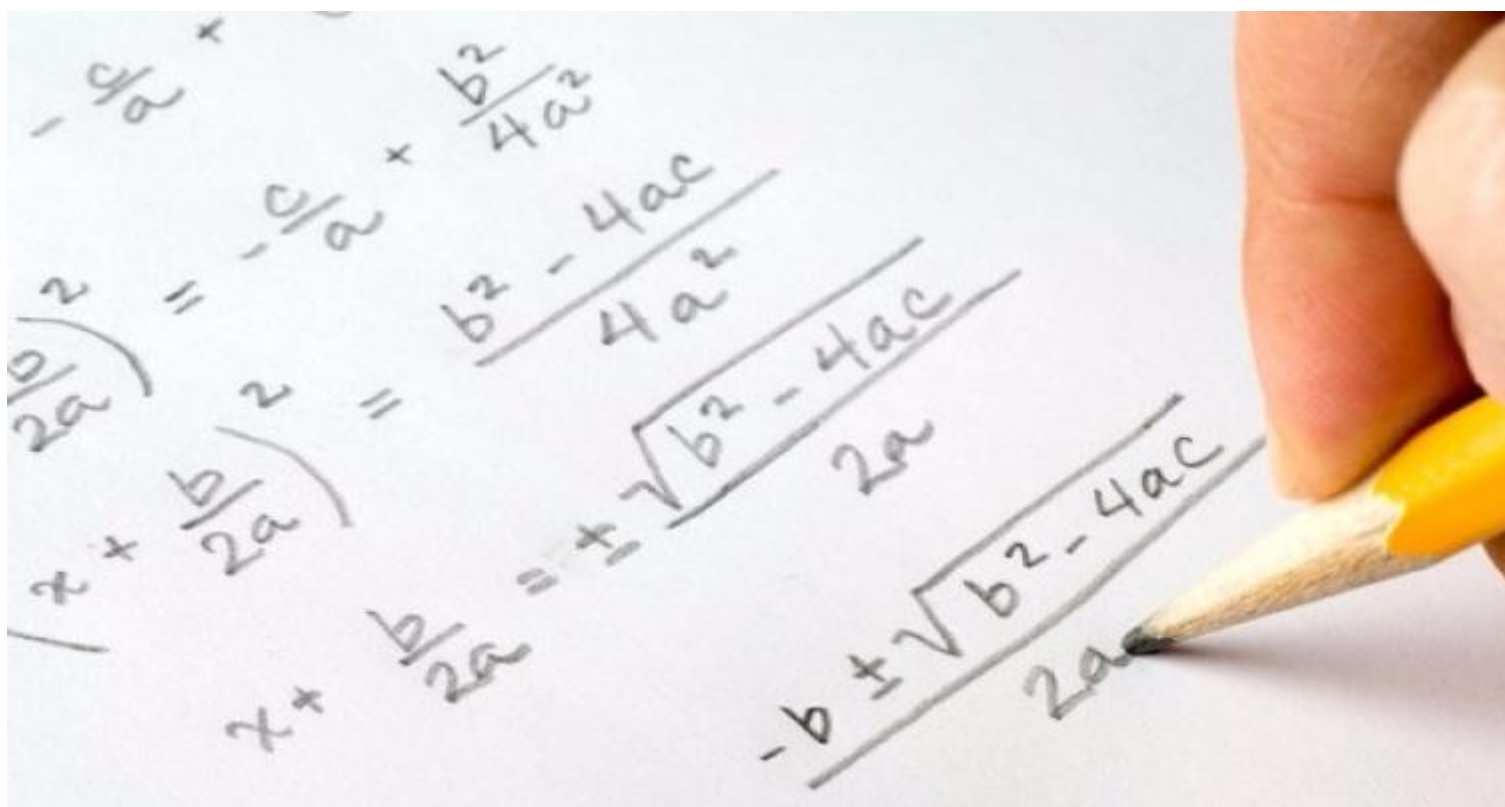 - c/a +
b/2a)² = - c/a + b²/4a²
(x + b/2a)² = b² - 4ac / 4a²
x + b/2a = ± √(b² - 4ac) / 2a
-b ± √(b² - 4ac) / 2a